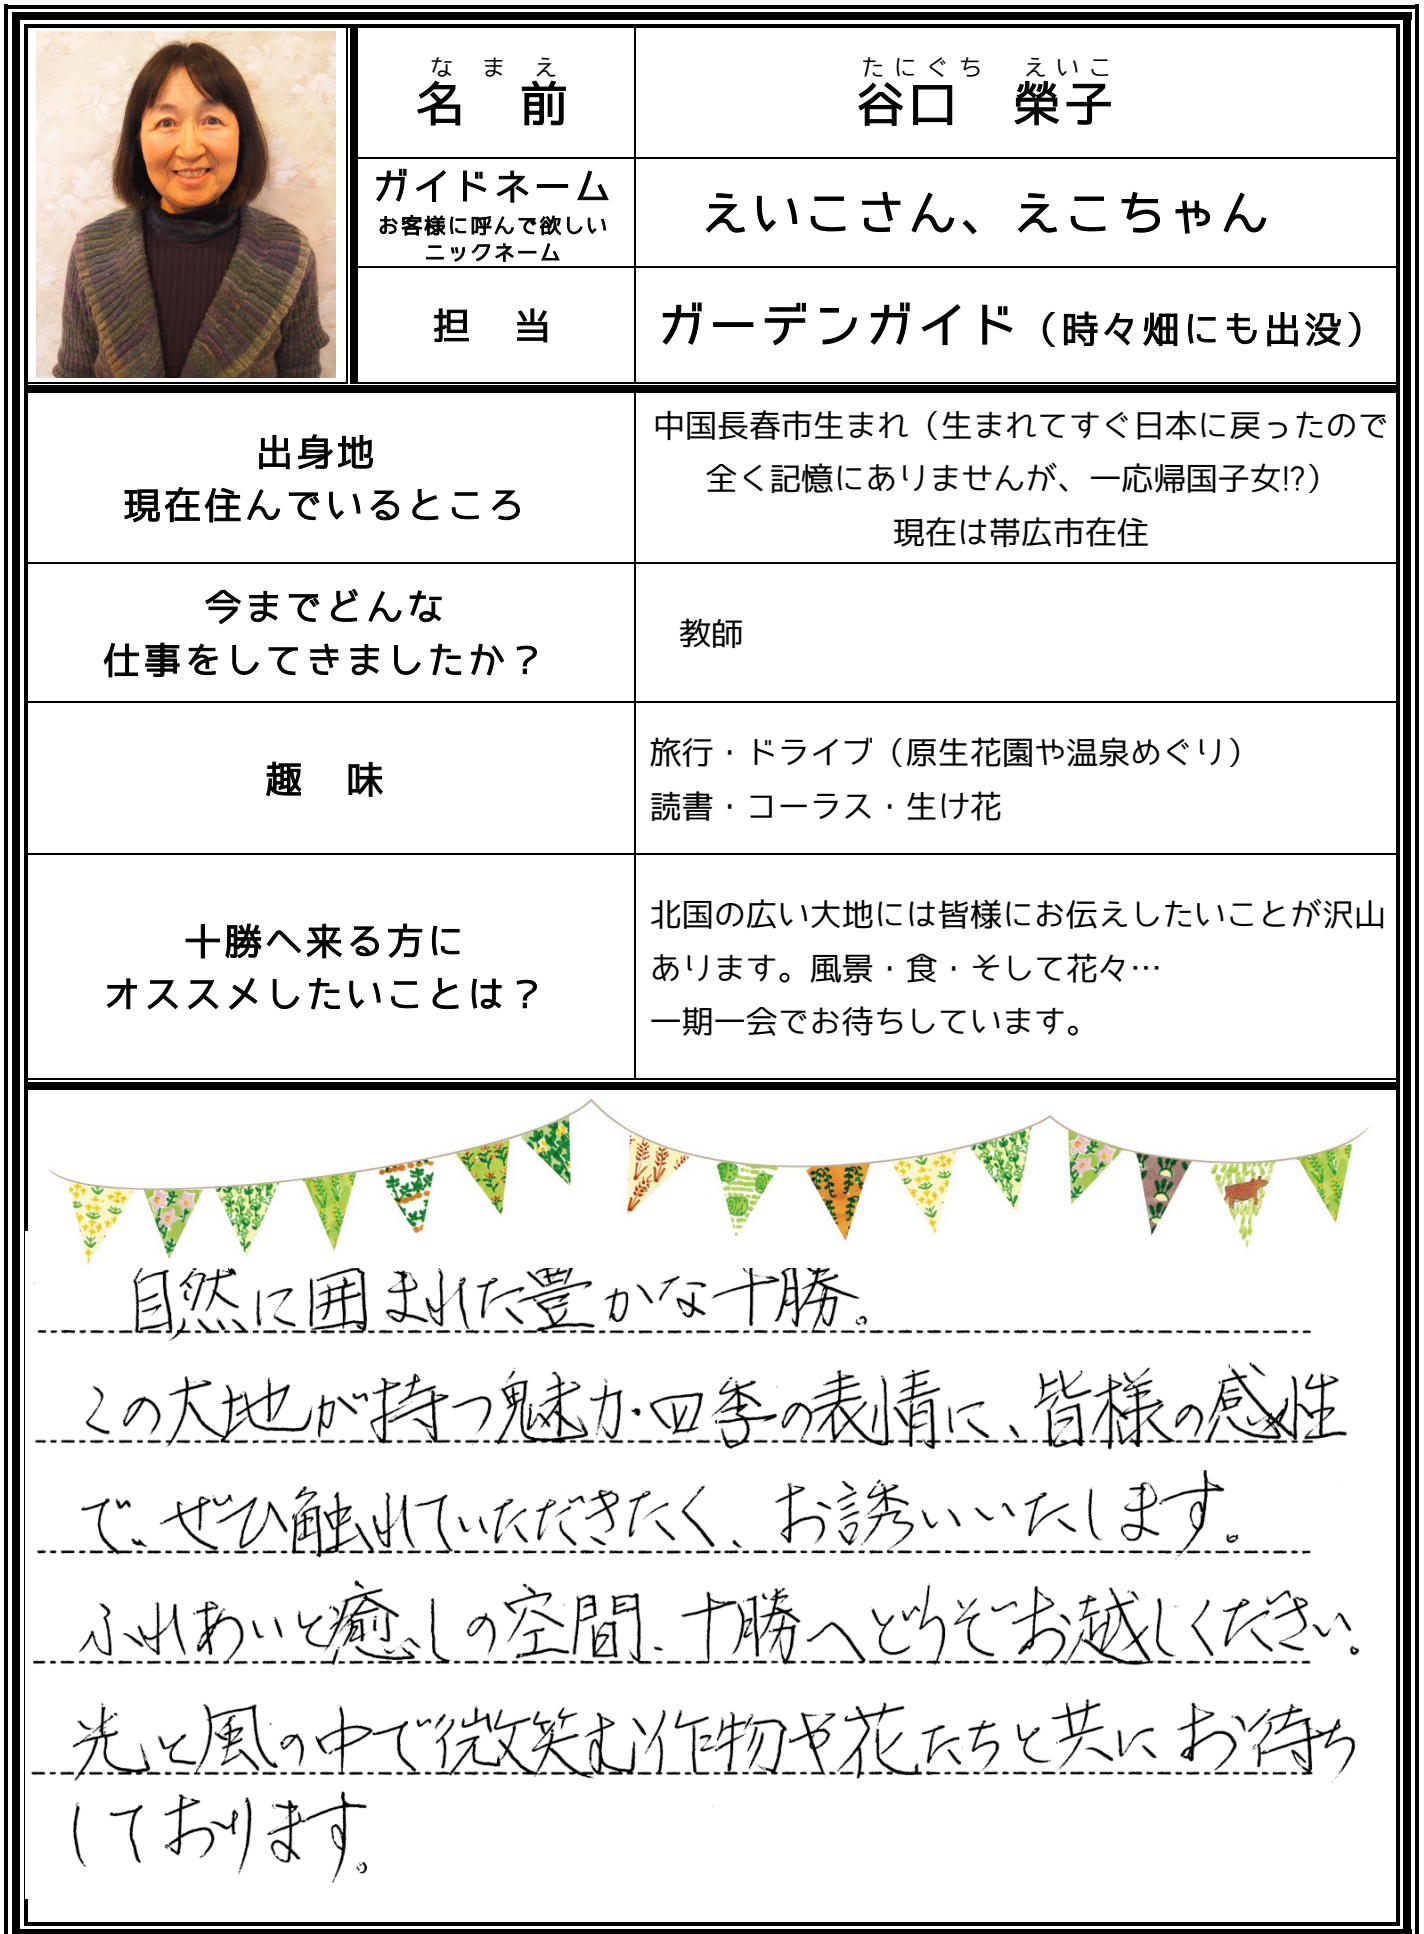 なまえ
名　前
たにぐち　えいこ
谷口　榮子
ガイドネーム
お客様に呼んで欲しい
ニックネーム
えいこさん、えこちゃん
担　当
ガーデンガイド（時々畑にも出没）
出身地
現在住んでいるところ
中国長春市生まれ（生まれてすぐ日本に戻ったので
全く記憶にありませんが、一応帰国子女!?）
現在は帯広市在住
今までどんな
仕事をしてきましたか？
教師
趣　味
旅行・ドライブ（原生花園や温泉めぐり）
読書・コーラス・生け花
十勝へ来る方に
オススメしたいことは？
北国の広い大地には皆様にお伝えしたいことが沢山
あります。風景・食・そして花々…
一期一会でお待ちしています。
自然に囲まれた豊かな十勝。
この大地が持つ魅力・四季の表情に、皆様の感性
で、ぜひ触れていただきたく、お誘いいたします。
ふれあいと癒しの空間、十勝へどうぞお越しください。
光と風の中で微笑む作物や花たちと共にお待ち
しております。